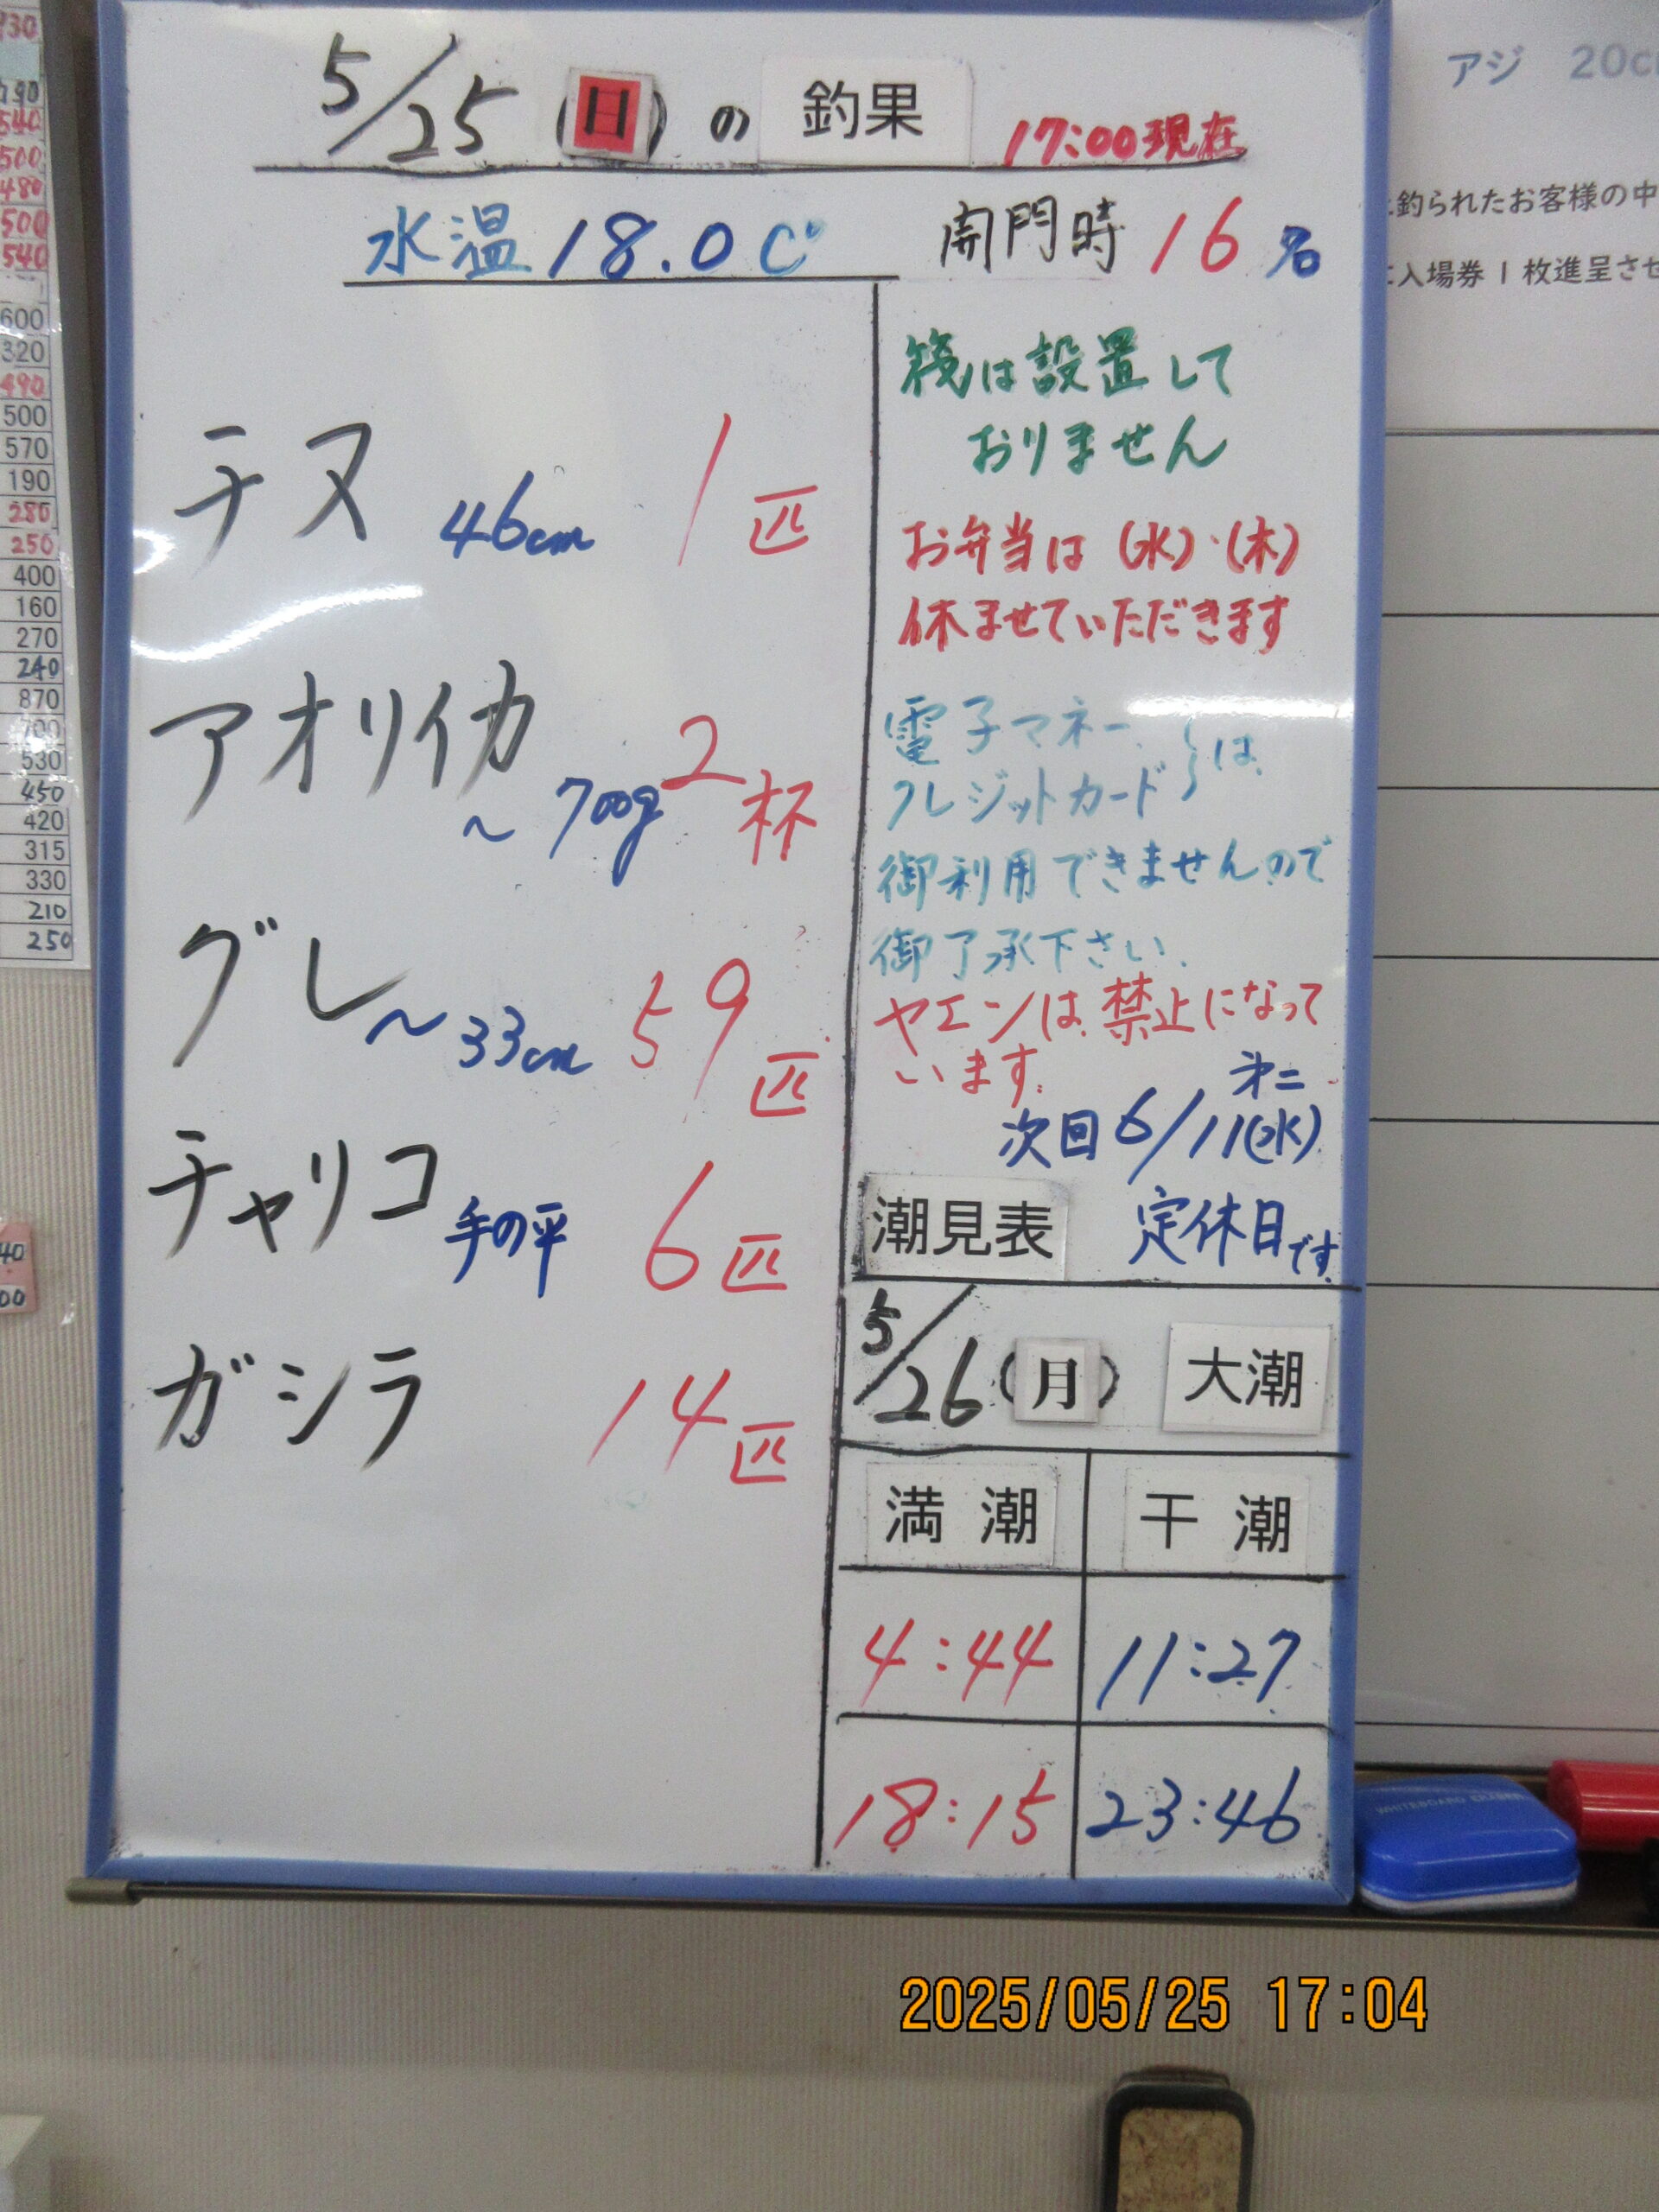 5/25(日)の釣果 17:00現在
水温18.0C° 開門時16名
チヌ 46cm 1匹
アオリイカ ~700g 2杯
グレ~33cm 59匹
チャリコ 手の平 6匹
ガシラ 14匹
筏は設置して
おりません
お弁当は(水)・(木)
休ませていただきます
電子マネー、
クレジットカード}は、
御利用できませんので
御了承下さい、
ヤエンは、禁止になって
います。
次回6/11(水)
第二
定休日です
潮見表
5/26(月) 大潮
満潮 干潮
4:44 11:27
18:15 23:46
アジ 20c
釣られたお客様の中
入場券1枚進呈させ
540
500
480
500
540
600
320
490
500
570
190
280
250
400
160
270
240
870
700
530
450
420
315
330
210
250
40
00
WHITEBOARD ERASER
2025/05/25 17:04